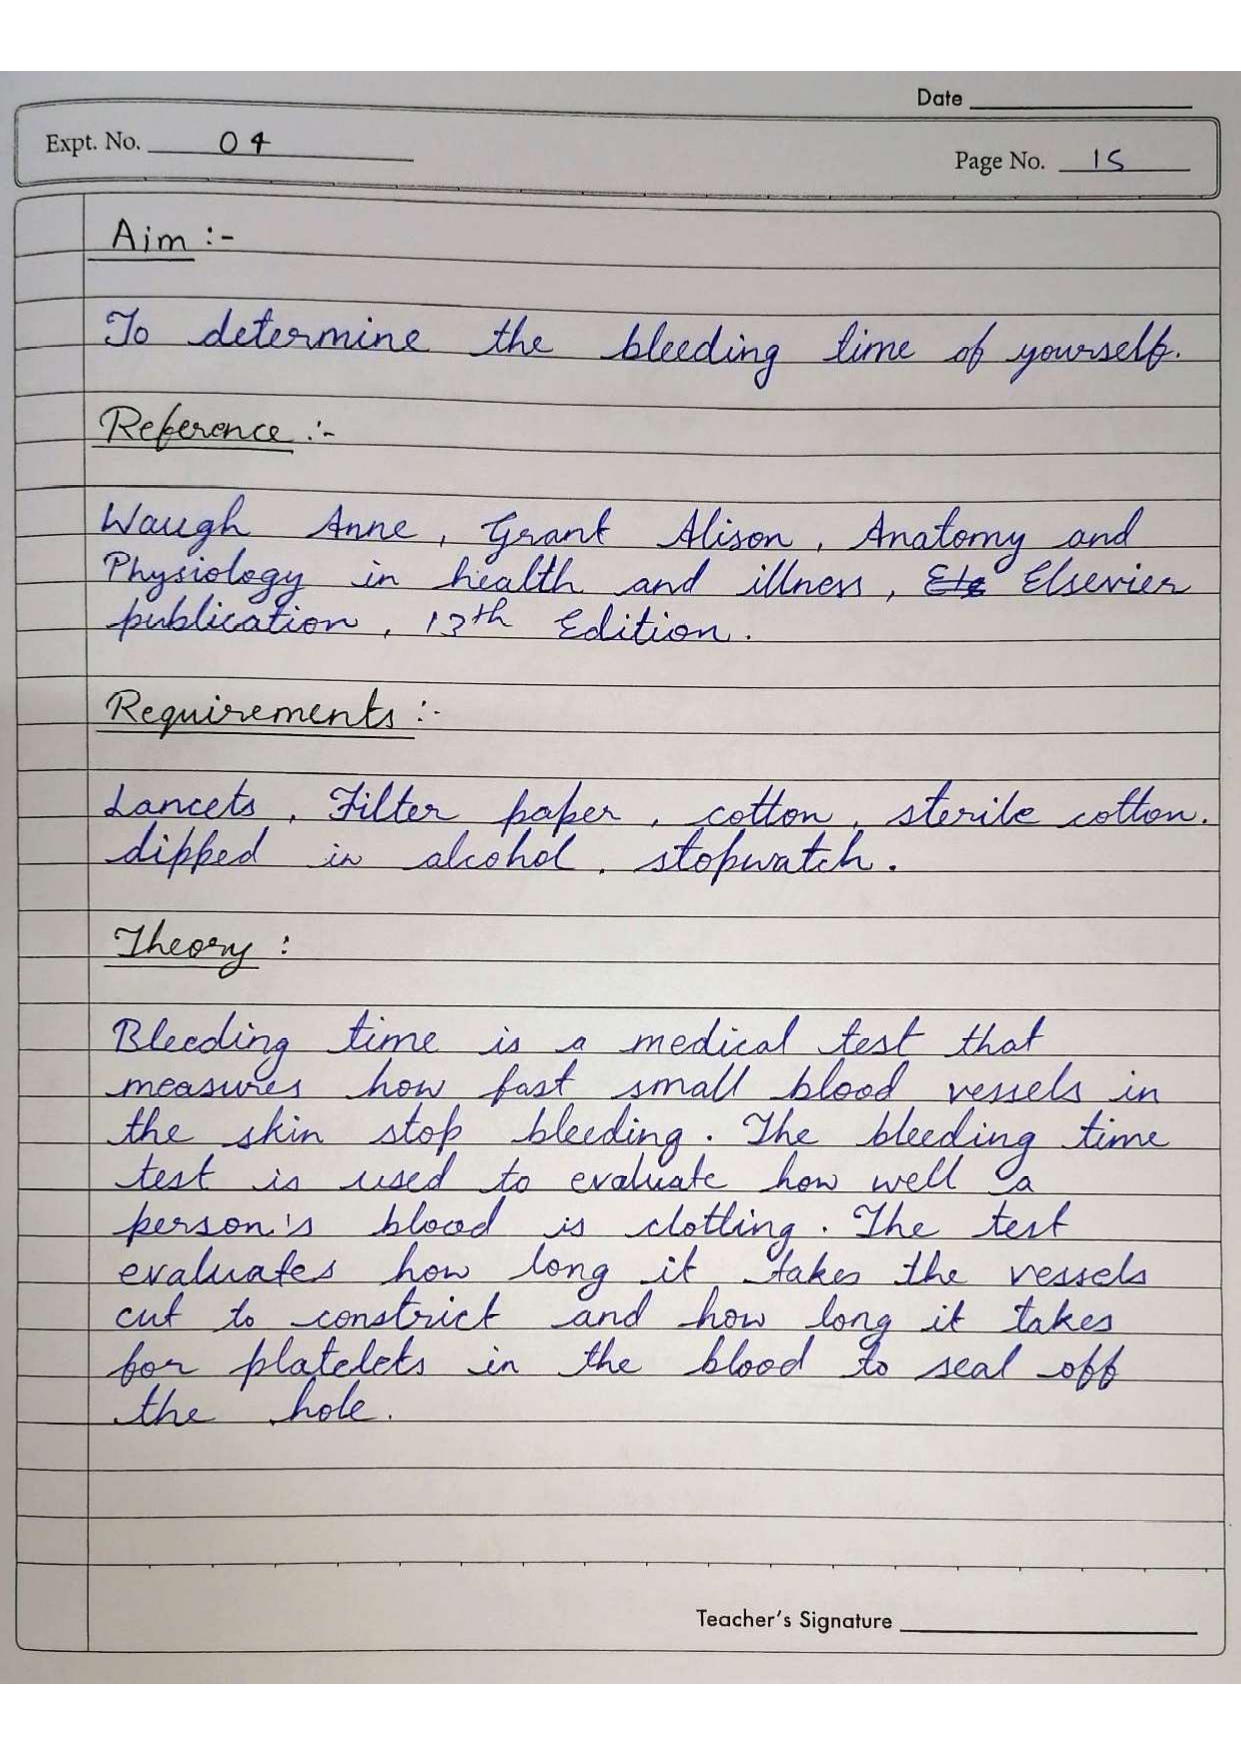 Date
Expt. No. 04
Page No. 15
Aim :-
To determine the bleeding time of yourself.
Reference :-
Waugh Anne, Grant Alison, Anatomy and
Physiology in health and illness, Els Elsevier
publication, 13th Edition.
Requirements :-
Lancets, Filter paper, cotton, sterile cotton.
dipped in alcohol, stopwatch.
Theory :
Bleeding time is a medical test that
measures how fast small blood vessels in
the skin stop bleeding. The bleeding time
test is used to evaluate how well a
person's blood is clotting. The test
evaluates how long it takes the vessels
cut to constrict and how long it takes
for platelets in the blood to seal off
the hole.
Teacher's Signature